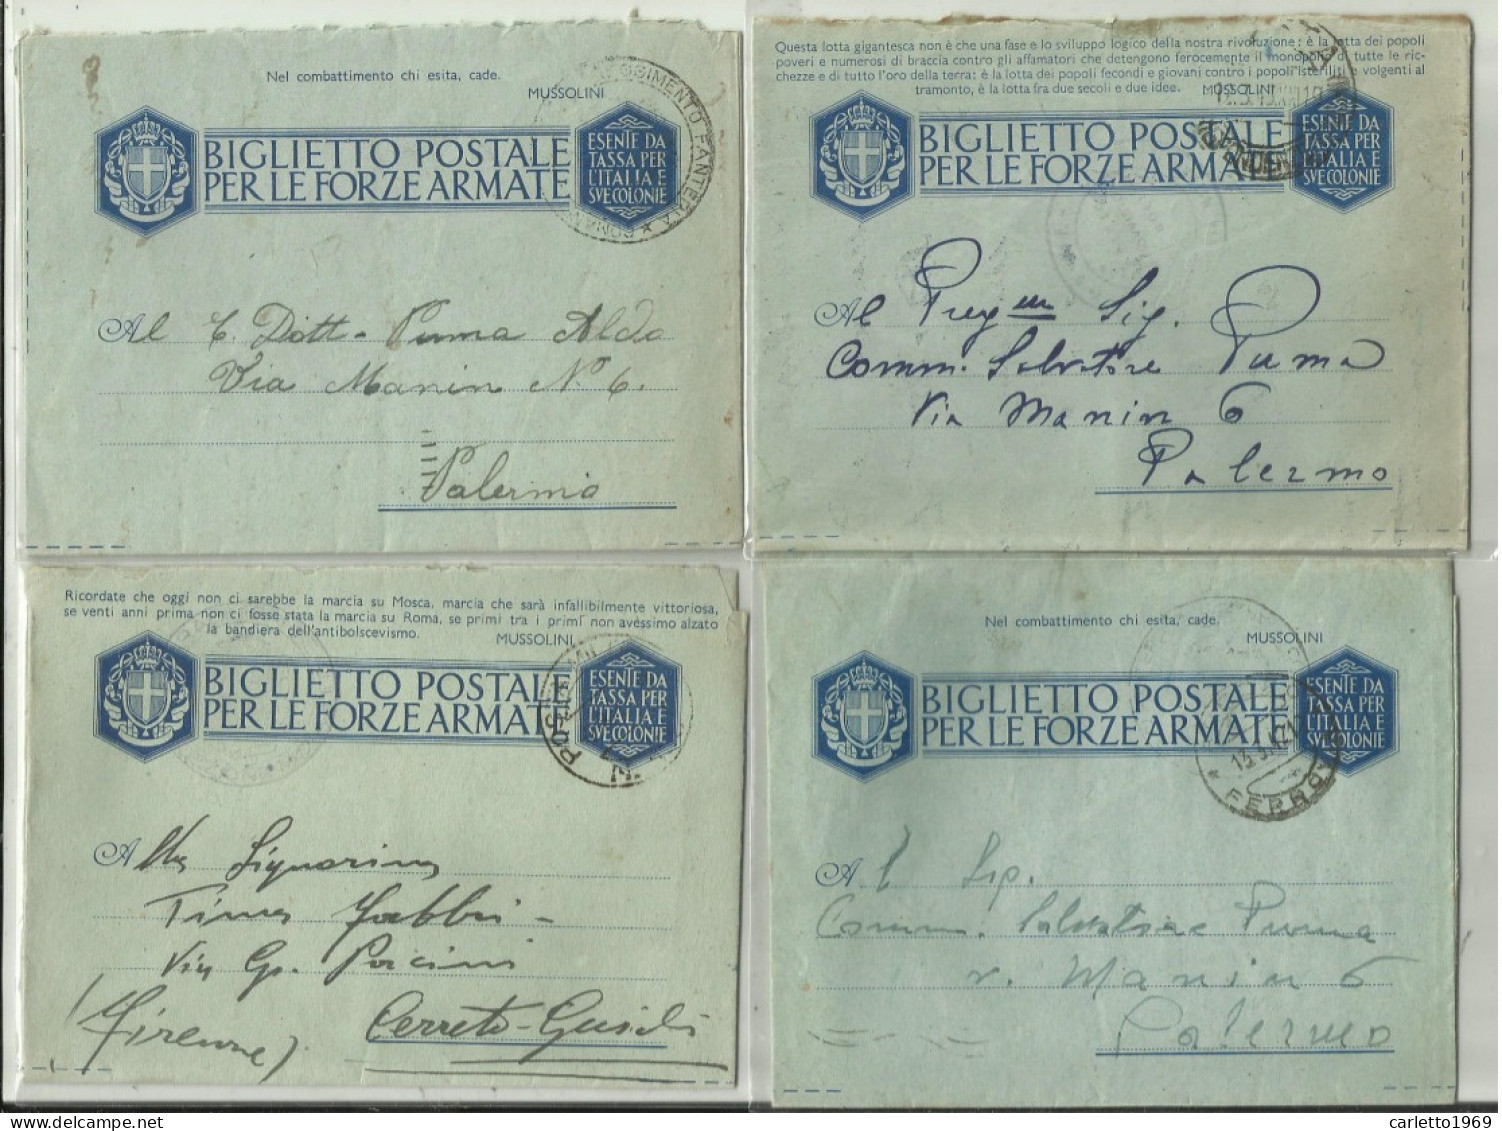 Nel combattimento chi esita, cade.
MUSSOLINI
BIGLIETTO POSTALE
PER LE FORZE ARMATE
ESENTE DA
TASSA PER
L'ITALIA E
SVE COLONIE
FANTERIA
Al C. Dott. Puma Aldo
Via Manin N. 6.
Palermo
Questa lotta gigantesca non è che una fase e lo sviluppo logico della nostra rivoluzione: è la lotta dei popoli
poveri e numerosi di braccia contro gli affamatori che detengono ferocemente il monopolio di tutte le ric-
chezze e di tutto l'oro della terra: è la lotta dei popoli fecondi e giovani contro i popoli isteriliti e volgenti al
tramonto, è la lotta fra due secoli e due idee. MUSSOLINI
BIGLIETTO POSTALE
PER LE FORZE ARMATE
ESENTE DA
TASSA PER
L'ITALIA E
SVE COLONIE
Al Sig.
Comm. Salvatore Puma
Via Manin 6
Palermo
Ricordate che oggi non ci sarebbe la marcia su Mosca, marcia che sarà infallibilmente vittoriosa,
se venti anni prima non ci fosse stata la marcia su Roma, se primi tra i primi non avessimo alzato
la bandiera dell'antibolscevismo. MUSSOLINI
BIGLIETTO POSTALE
PER LE FORZE ARMATE
ESENTE DA
TASSA PER
L'ITALIA E
SVE COLONIE
Alla Signorina
Tina Fabbri -
Via G. Pacini
Cerreto-Guidi
(Firenze)
Nel combattimento chi esita, cade.
MUSSOLINI
BIGLIETTO POSTALE
PER LE FORZE ARMATE
ESENTE DA
TASSA PER
L'ITALIA E
SVE COLONIE
Al Sig.
Comm. Salvatore Puma
v. Manin 6
Palermo
carletto1969